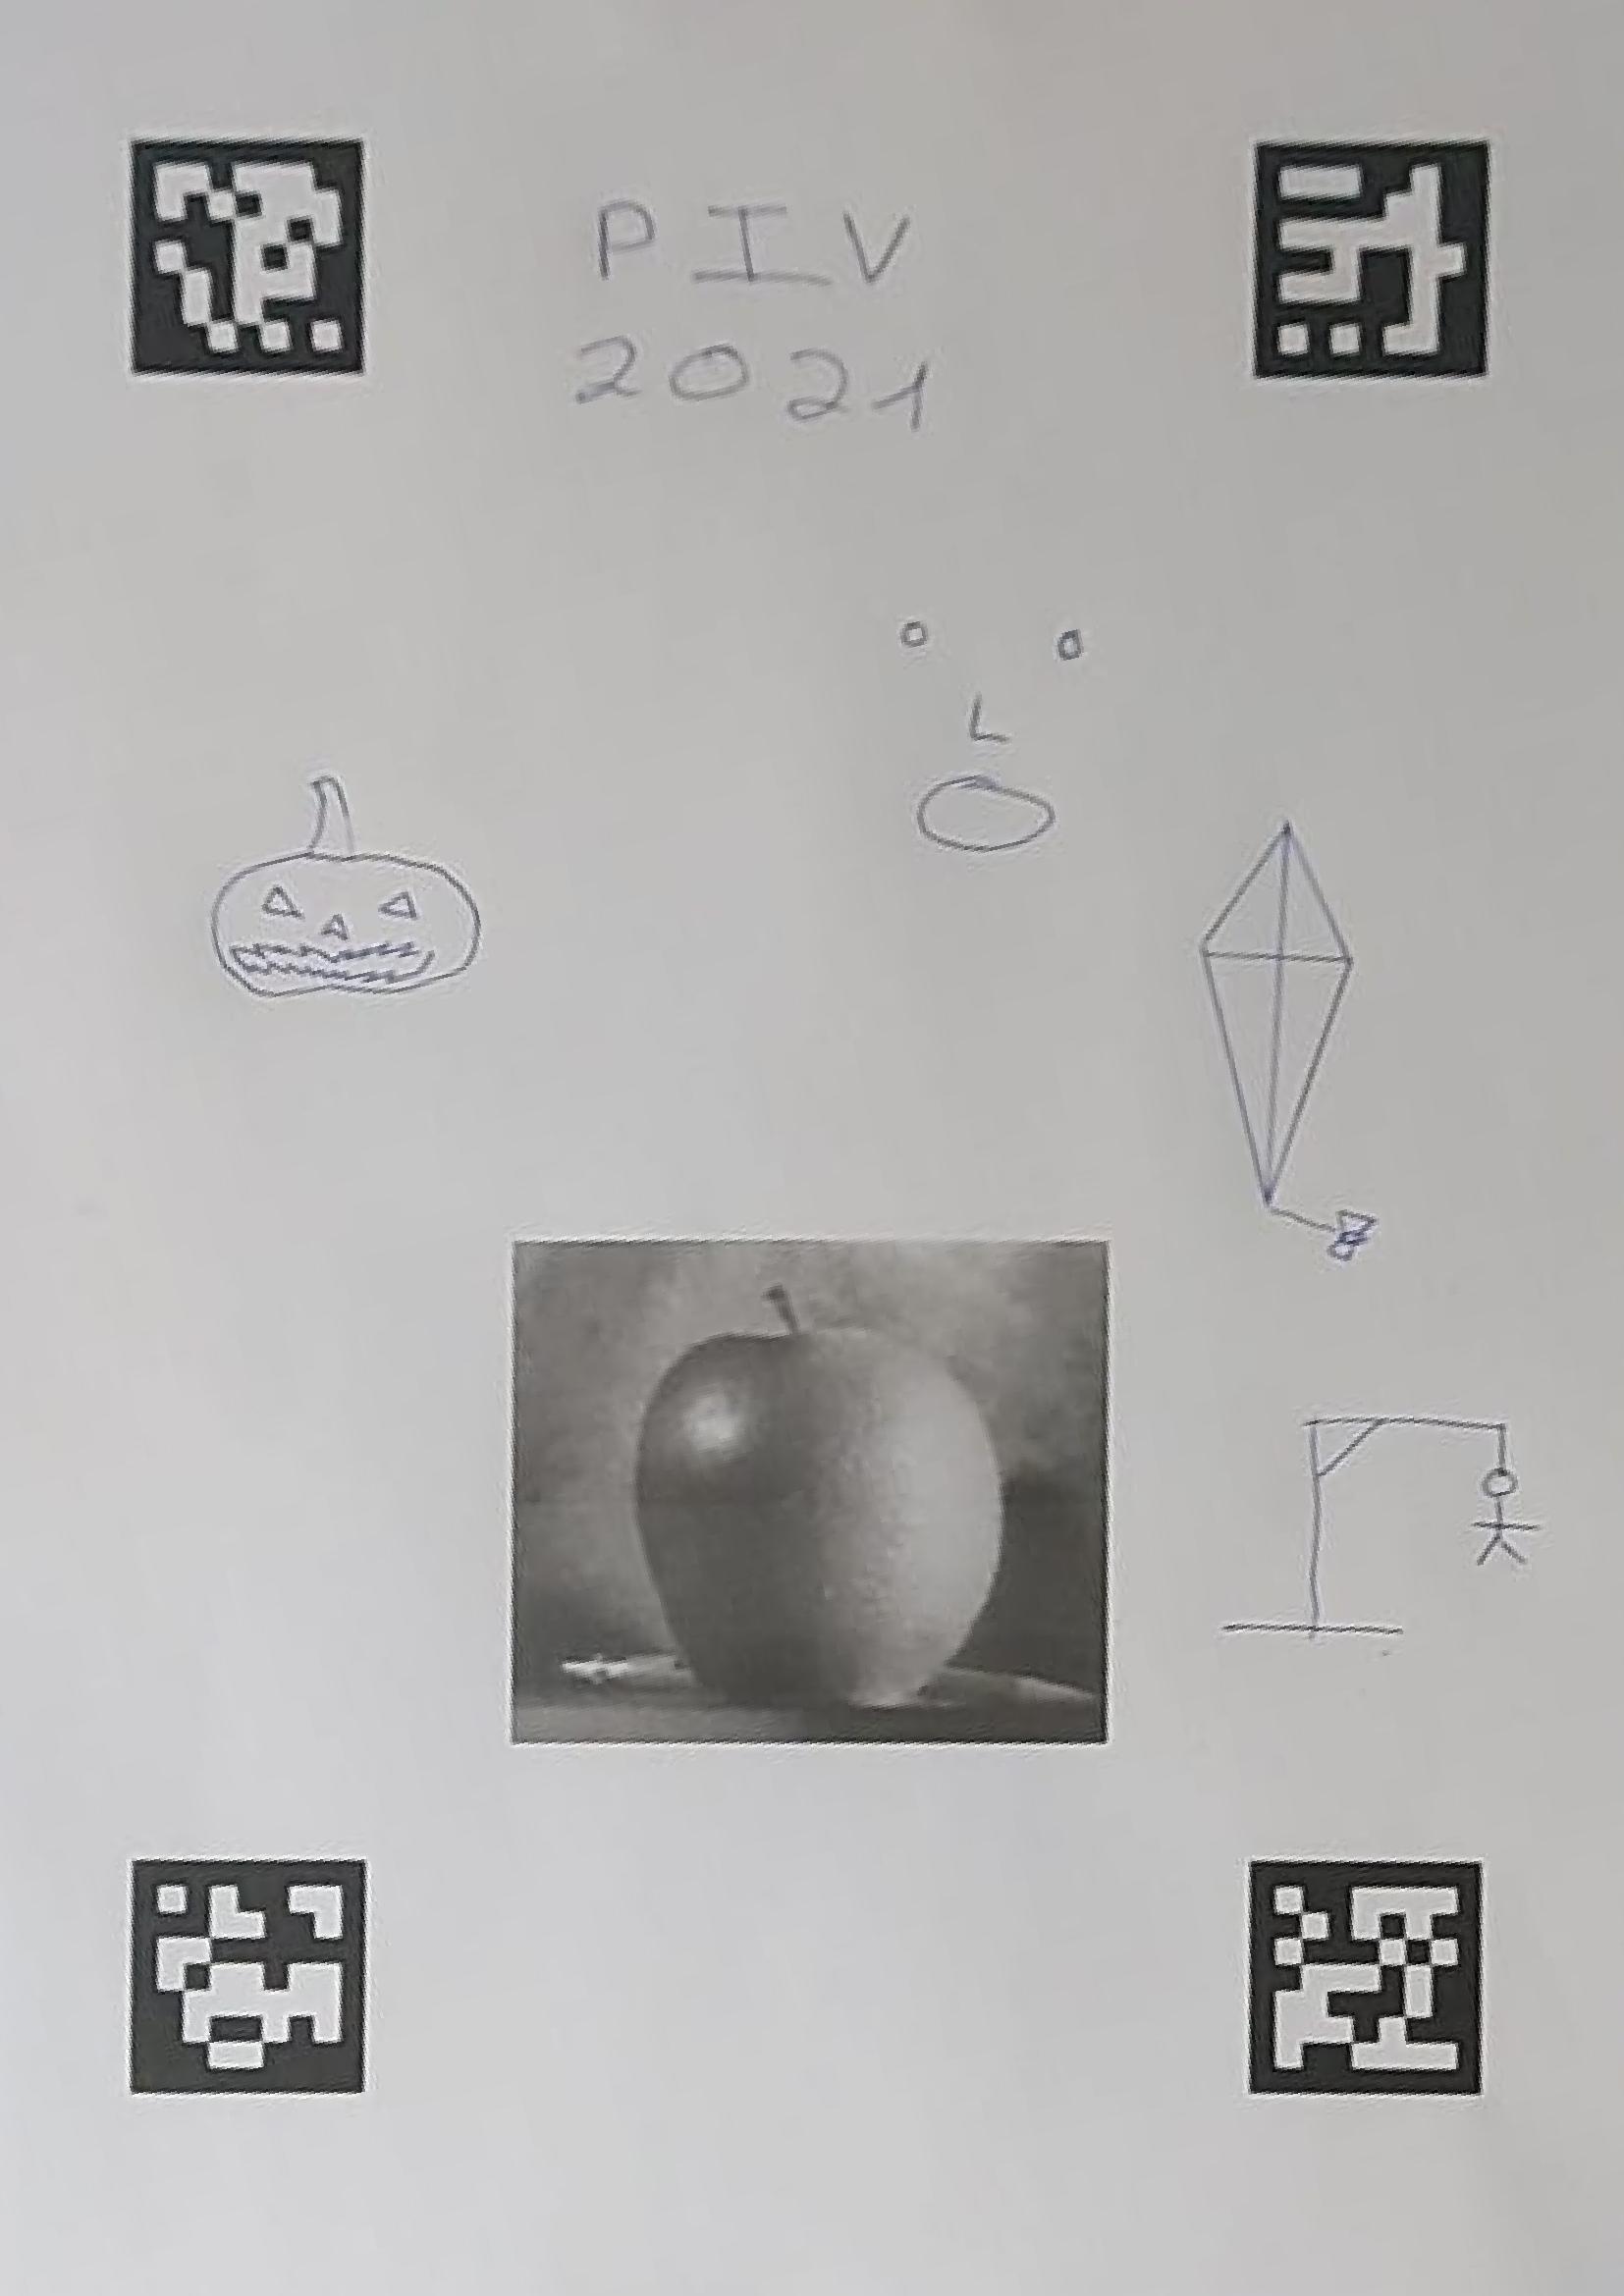 PIV
2021